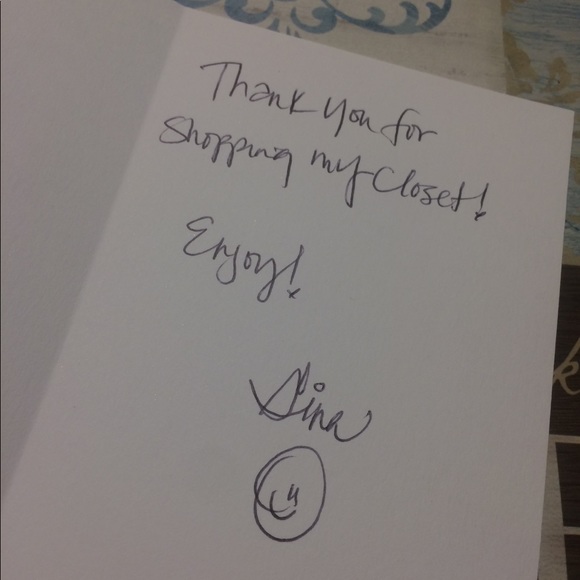 Thank you for
Shopping my closet!
Enjoy!
Gina
k